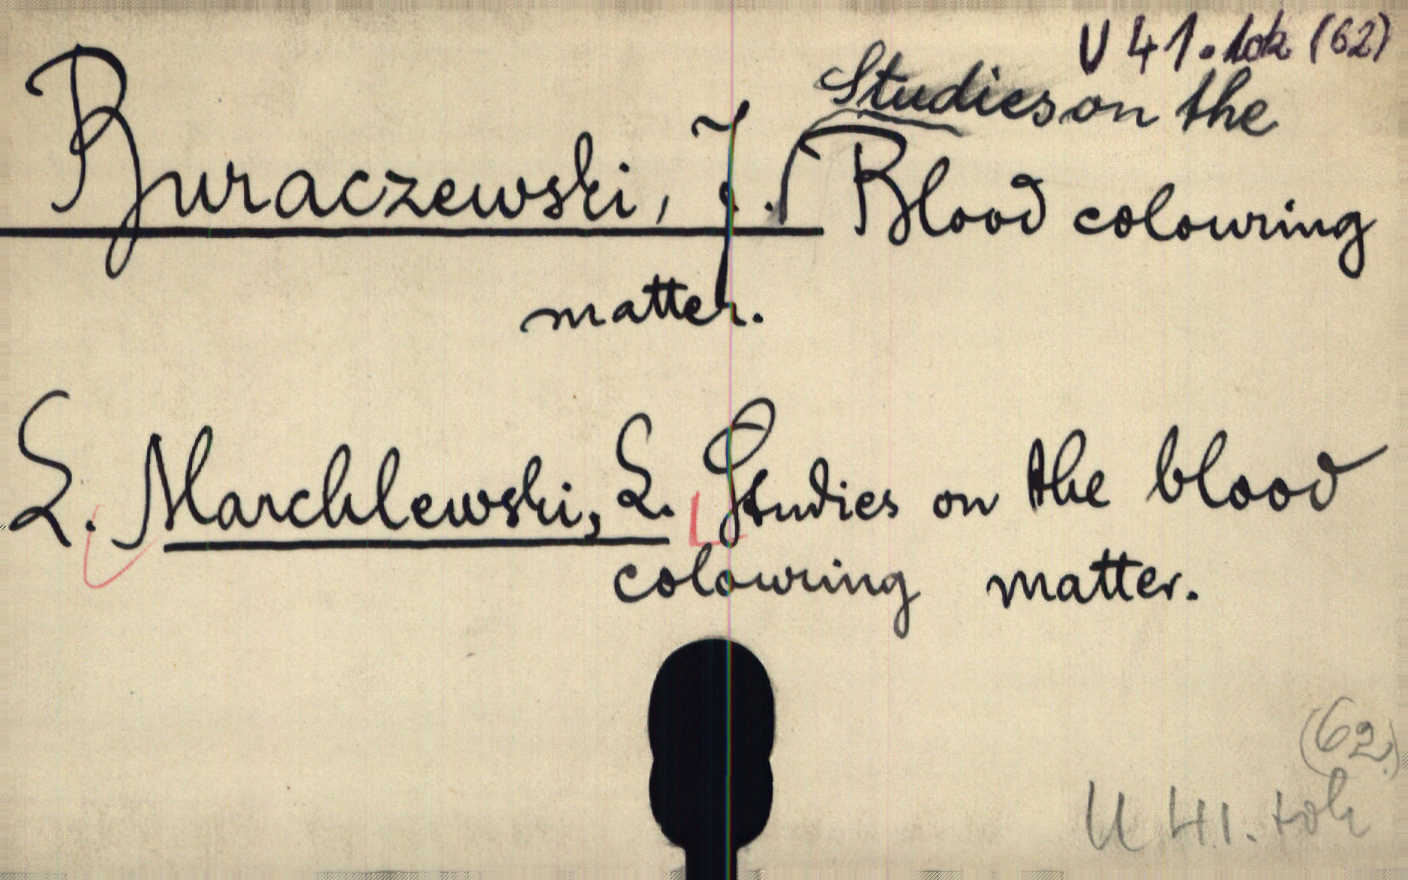 U 41. tok (62)
Studies on the
Buraczewski, J. Blood colouring
matter.
L. Marchlewski, L. Studies on the blood
colouring matter.
(62)
U 41. tok